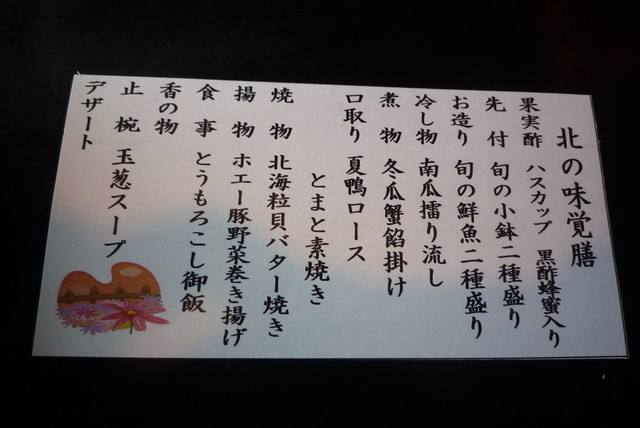 北の味覚膳
果実酢 ハスカップ 黒酢蜂蜜入り
先付 旬の小鉢二種盛り
お造り 旬の鮮魚二種盛り
冷し物 南瓜擂り流し
煮物 冬瓜蟹餡掛け
口取り 夏鴨ロース
とまと素焼き
焼物 北海粒貝バター焼き
揚物 ホエー豚野菜巻き揚げ
食事 とうもろこし御飯
香の物
止椀 玉葱スープ
デザート